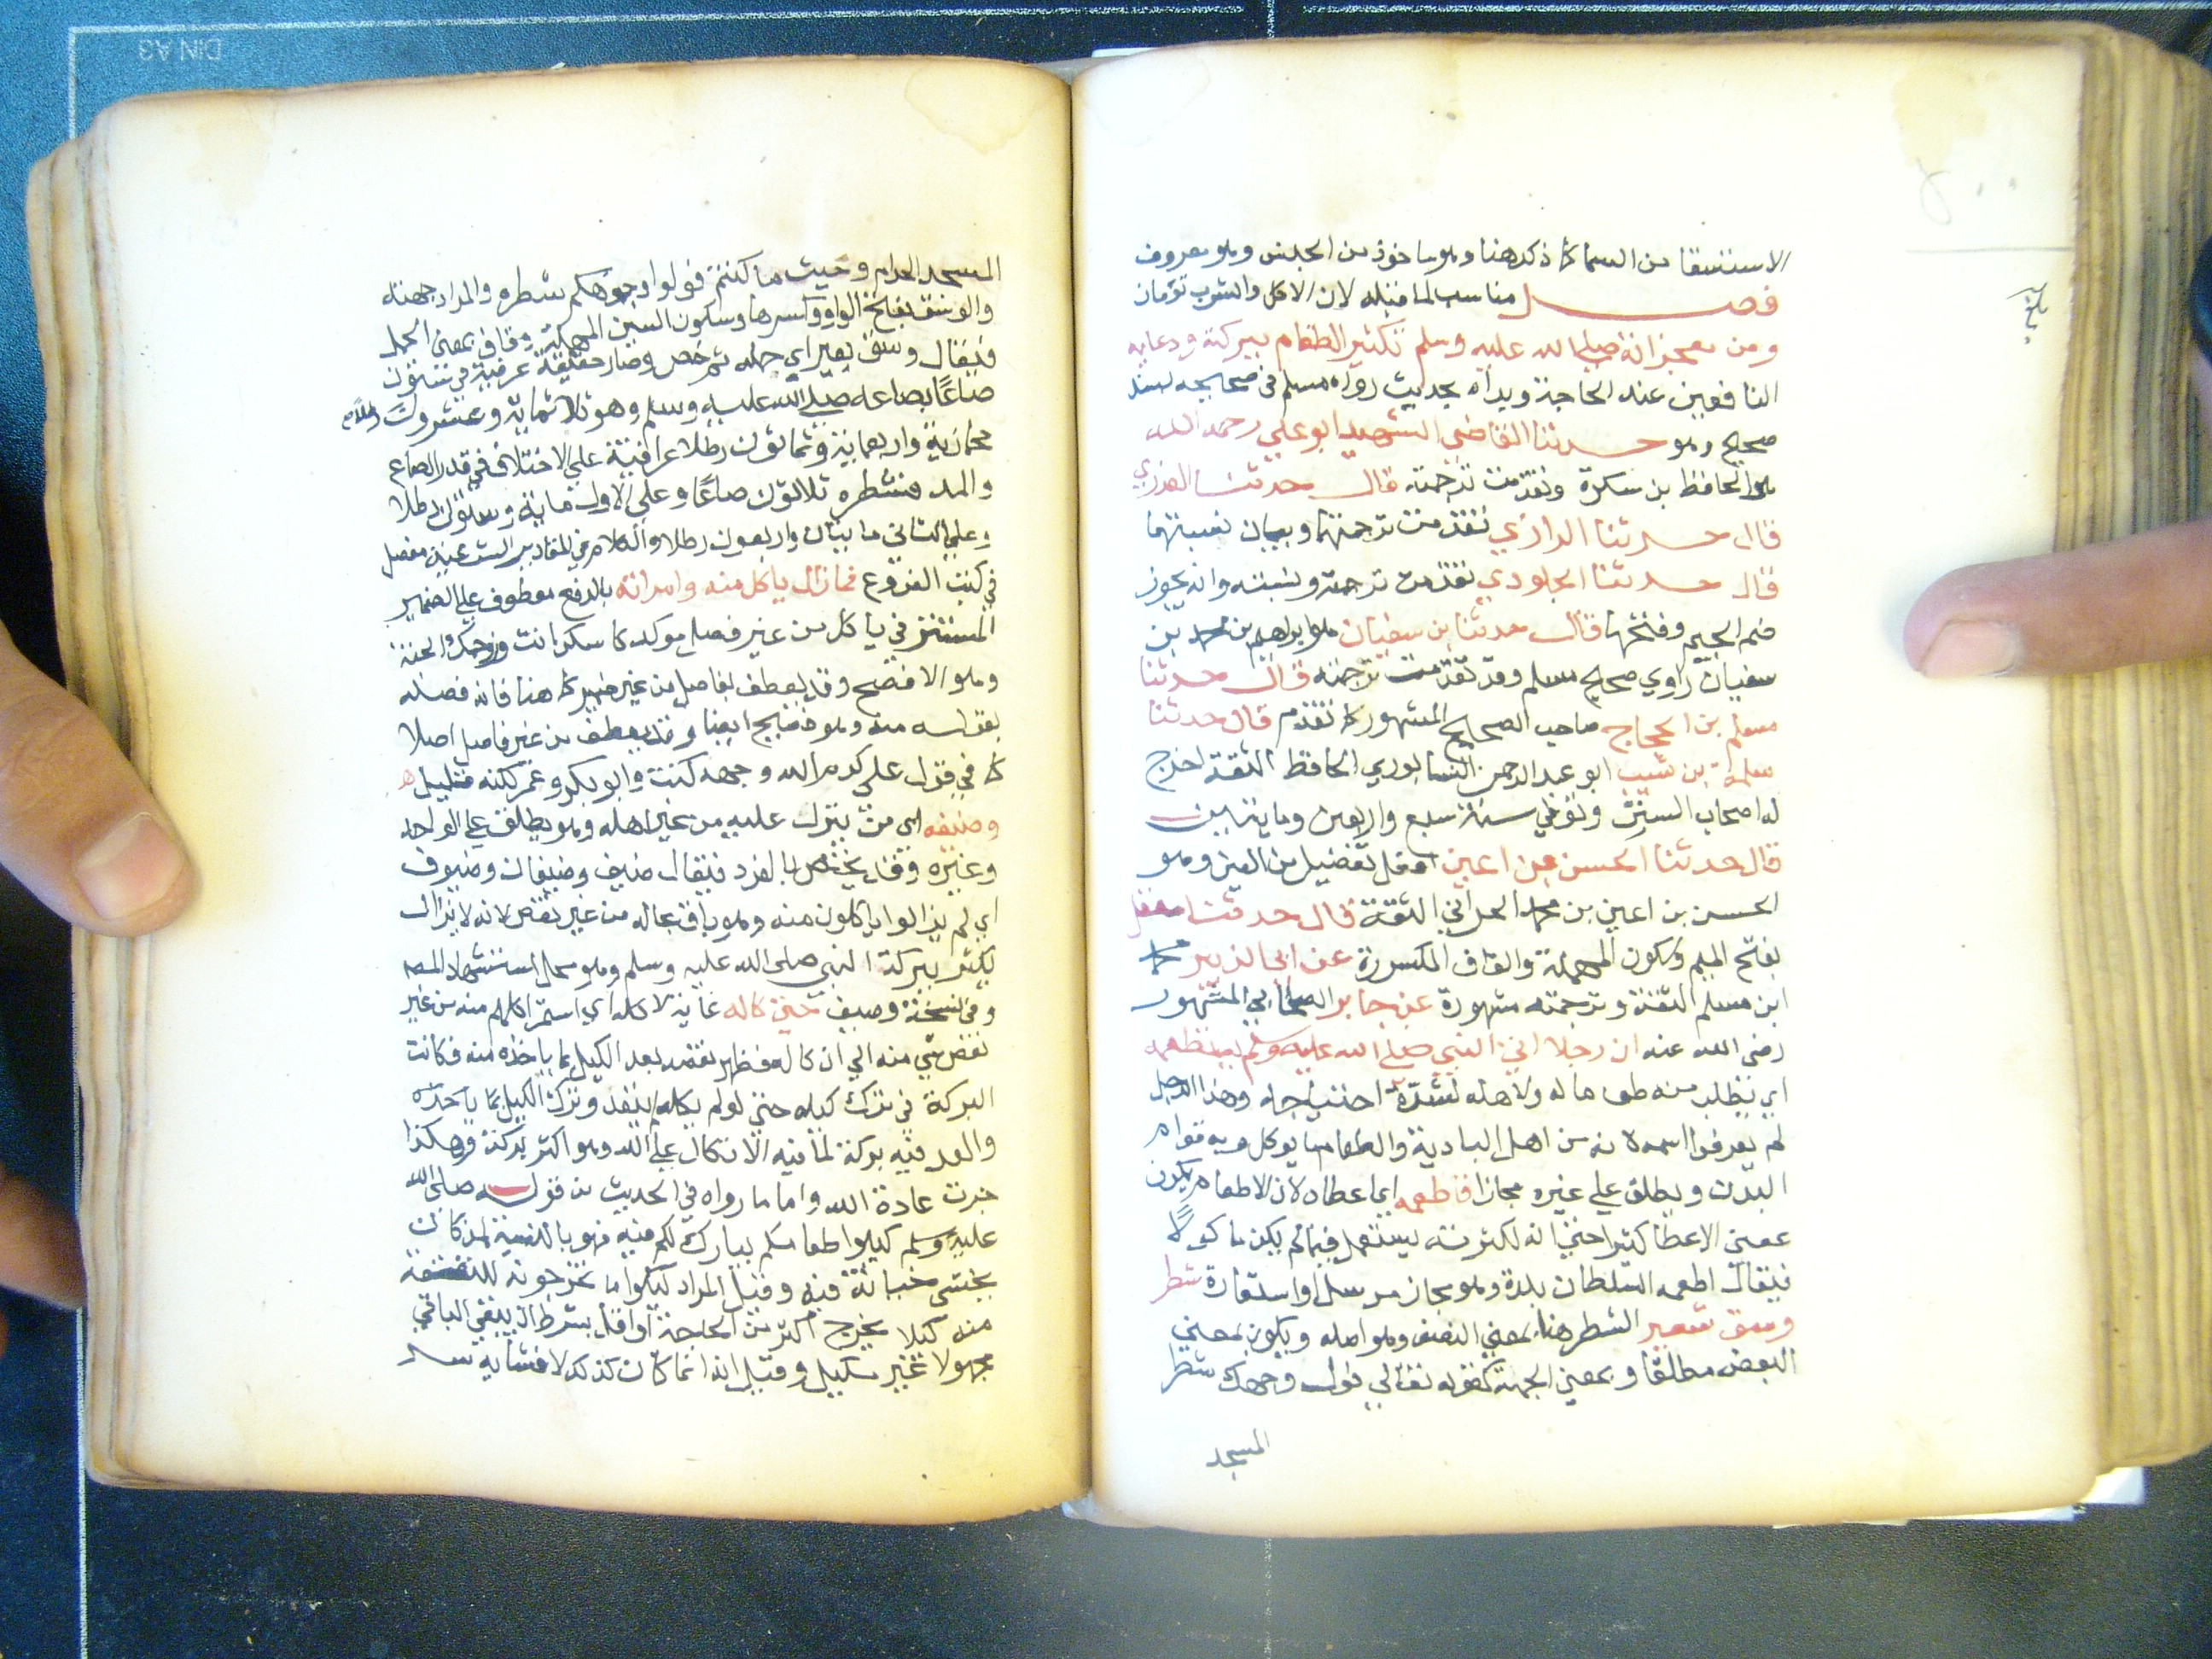 الاستسقا من السما كما ذكر هنا وهو ماخوذ من الجلبس وهو معروف
فصل مناسب لما قبله لان الاكل والشرب توءمان
ومن معجزاته صلى الله عليه وسلم تكثير الطعام ببركته ودعايه
النافعين عند الحاجة وبداه بحديث رواه مسلم في صحيحه بسند
صحيح وهو حدثنا القاضي الشهيد ابو علي رحمه الله
هو الحافظ بن سكرة وتقدمت ترجمته قال حدثنا العذري
قال حدثنا الرازي تقدمت ترجمتهما وبيان نسبتهما
قال حدثنا الجلودي تقدمت ترجمته ونسبته وانه يجوز
ضم الجيم وفتحها قال حدثنا بن سفيان هو ابراهيم بن محمد بن
سفيان راوي صحيح مسلم وقد تقدمت ترجمته قال حدثنا
مسلم بن الحجاج صاحب الصحيح المشهور كما تقدم قال حدثنا
سلمة بن شبيب ابو عبد الرحمن النسابوري الحافظ الثقة اخرج
له اصحاب السنن وتوفي سنة سبع واربعين وماينين
قال حدثنا الحسن بن اعين افعل تفضيل من العين وهو
الحسن بن اعين بن محمد الحراني الثقة قال حدثنا معقل
بفتح الميم وسكون المهملة والقاف المكسورة عن ابي الزبير محمد
ابن مسلم الثقة وترجمته مشهورة عن جابر الصحابي المشهور
رضي الله عنه ان رجلا اتي النبي صلى الله عليه وسلم يستطعمه
اي يطلب منه طعاما له ولاهله لشدة احتياجه وهذا الرجل
لم يعرفوا اسمه لانه من اهل البادية والطعام ما يوكل وبه قوام
البدن ويطلق علي غيره مجازا فاطعمه اي اعطاه لان الاطعام يكون
بمعني الاعطا كثيرا حتي انه لكثرته يستعمل فيما لم يكن ماكولا
فيقال اطعمه السلطان بلدة وهو مجاز مرسل او استعارة شطر
وسق شعير الشطر هنا بمعني النصف وهو اصله ويكون بمعني
البعض مطلقا وبمعني الجهة كقوله تعالي فول وجهك شطر
المسجد
المسجد الحرام وحيث ما كنتم فولوا وجوهكم شطره والمراد جهته
والوسق بفتح الواو وكسرها وسكون السين المهملة وقاف بمعني الحمل
فيقال وسق بعير اي حمله ثم خص وصار حقيقة عرفية في ستون
صاعا بصاعه صلى الله عليه وسلم وهو ثلاثماية وعشرون رطلا
حجازية واربعماية وثمانون رطلا عراقية علي الاختلاف في قدر الصاع
والمد فشطره ثلاثون صاعا وعلي الاول ماية وستون رطلا
وعلي الثاني مايتان واربعون رطلا والكلام في المقادير الشرعية مفصل
في كتب الفروع فما زال ياكل منه وامراته بالرفع معطوف علي الضمير
المستتر في ياكل من غير فصل موكد كاسكن انت وزوجك الجنة
وهو الافصح وقد يعطف بفاصل من غير ضمير كما هنا فانه فصله
بقوله منه وهو فصيح ايضا وقد يعطف من غير فاصل اصلا
كما في قول علي كرم الله وجهه كنت وابو بكر وعمر لكنه قليل
وضيفه اي من ينزل عليه من غير اهله وهو يطلق علي الواحد
وغيره وقد يختص بالمفرد فيقال ضيف وضيفان وضيوف
اي لم يزالوا ياكلون منه وهو باق بحاله من غير نقص لانه لا يزال
يكثر ببركة النبي صلى الله عليه وسلم وهو محل استشهاد المصـ
وفي نسخة وصيف حتي كاله غاية لاكله اي استمر اكلهم منه من غير
نقص شي منه الي ان كاله فظهر نقصه بعد الكيل بما ياخذه منه فكانت
البركة في ترك كيله حتي لو لم يكله لم ينفد وترك الكيل بما ياخذه
والعد فيه بركة لما فيه الاتكال علي الله وهو اكثر بركة وهكذا
جرت عادة الله واما ما رواه في الحديث من قوله صلى الله
عليه وسلم كيلوا طعامكم يبارك لكم فيه فهو بالنسبة لمن كان
يخشي خيانة فيه وقيل المراد كيلوا ما تخرجونه للنفقة
منه كيلا يخرج اكثر من الحاجة او اقل بشرط ان يبقي الباقي
مجهولا غير مكيل وقيل انه انما كان كذلك لافشايه سـ